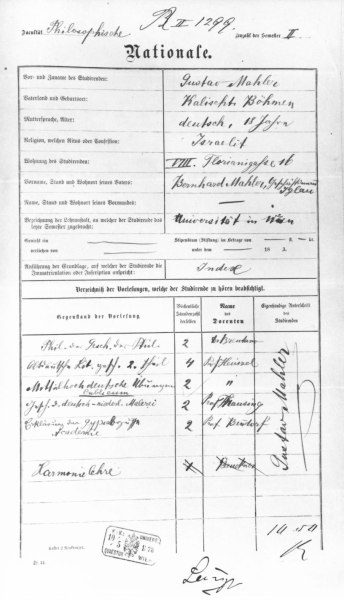 R II 1299.
Facultät: Philosophische Anzahl der Semester II.
Nationale.
Vor- und Zuname des Studirenden: Gustav Mahler
Vaterland und Geburtsort: Kalischt Böhmen
Muttersprache, Alter: deutsch, 18 Jahre
Religion, welchen Ritus oder Confession: Israelit
Wohnung des Studirenden: VIII. Florianigasse 16
Vorname, Stand und Wohnort seines Vaters: Bernhard Mahler, Iglau
Name, Stand und Wohnort seines Vormundes:
Bezeichnung der Lehranstalt, an welcher der Studirende das letzte Semester zugebracht: Universität in Wien
Geniesst ein Stipendium (Stiftung) im Betrage von fl. kr.
verliehen von unter dem 18
Anführung der Grundlage, auf welcher der Studirende die Immatriculation oder Inscription anspricht: Index
Verzeichniß der Vorlesungen, welche der Studirende zu hören beabsichtigt.
Gegenstand der Vorlesung
Wöchentliche Stundenzahl derselben
Name des Docenten
Eigenhändige Unterschrift des Studirenden
2 Dr Brentano
2. Theil 4 Prof Heinzel
Mittelhochdeutsche Übungen 2 "
Gesch. d. deutsch-niederl. Malerei 2 Prof Thausing
Erklärung der Gypsabgüsse Academie 2 Prof. Benndorf
Harmonielehre 4 Bruckner
Gustav Mahler